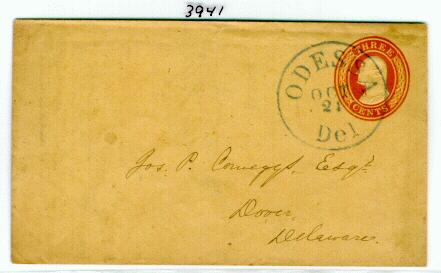 3941
THREE
CENTS
ODESSA
OCT
21
Del
Jos. P. Comegys, Esqr.
Dover,
Delaware.